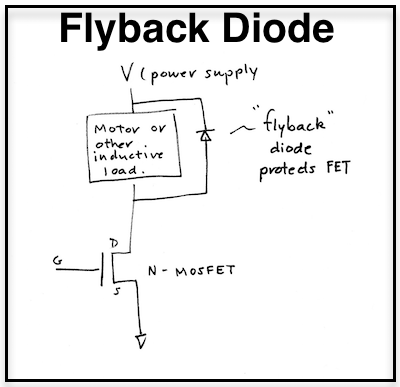 Flyback Diode
V (power supply
Motor or
other
inductive
load.
"flyback"
diode
protects FET
D
G
N-MOSFET
S